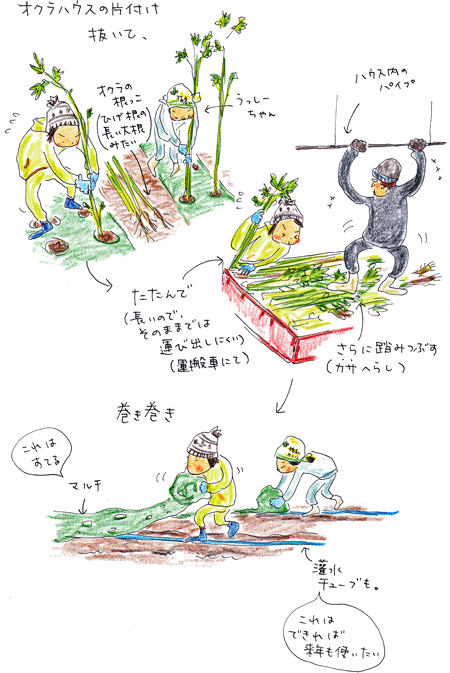 オクラハウスの片付け
抜いて、
オクラの
根っこ
(ひげ根の
長い大根
みたい)
うっしー
ちゃん
ハウス内の
パイプ
たたんで
(長いので、
そのままでは
運び出しにくい)
(運搬車にて)
さらに踏みつぶす
(カサへらし)
巻き巻き
これは
すてる
マルチ
灌水
チューブも。
これは
できれば
来年も使いたい